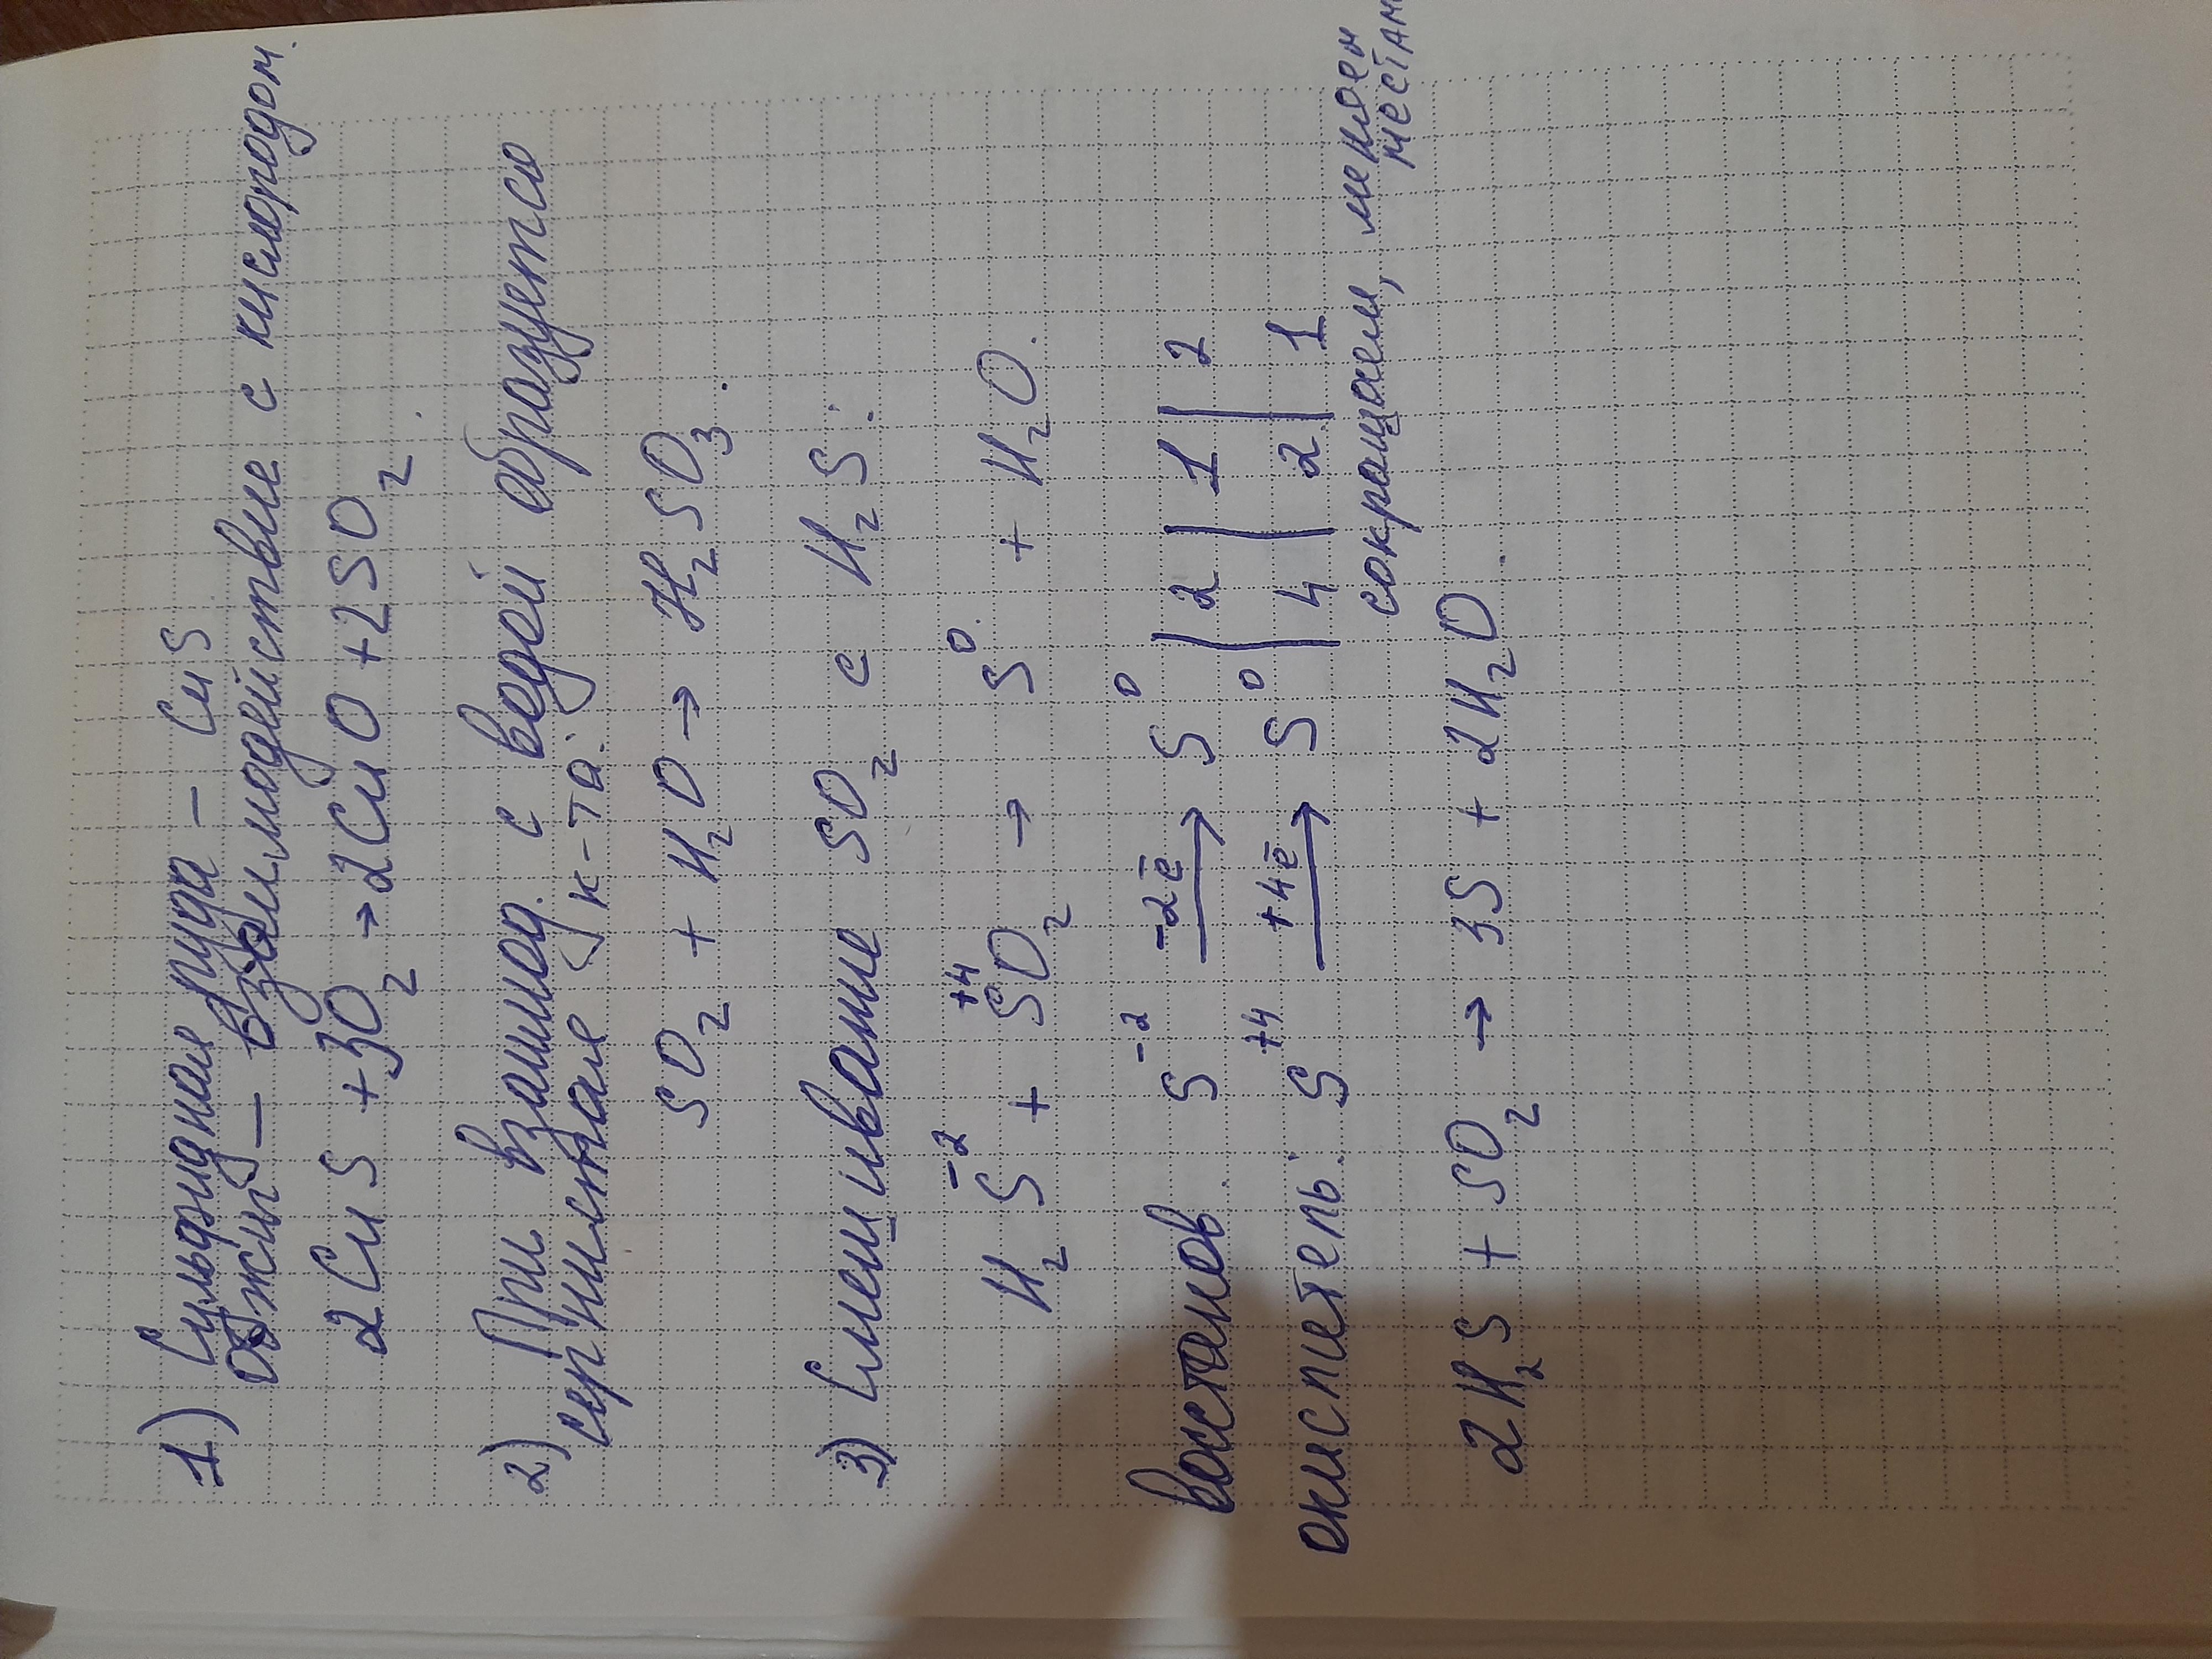 1) Сульфидная руда - CuS
обжиг - взаимодействие с кислородом.
2CuS + 3O₂ → 2CuO + 2SO₂.
2) При взаимод. с водой образуется
сернистая к-та:
SO₂ + H₂O → H₂SO₃.
3) Смешивание SO₂ с H₂S:
H₂S⁻² + S⁺⁴O₂ → S⁰ + H₂O.
востанов. S⁻² -2ē→ S⁰ | 2 | 1 | 2
окислитель: S⁺⁴ +4ē→ S⁰ | 4 | 2 | 1
сокращаем, меняем
местам
2H₂S + SO₂ → 3S + 2H₂O.